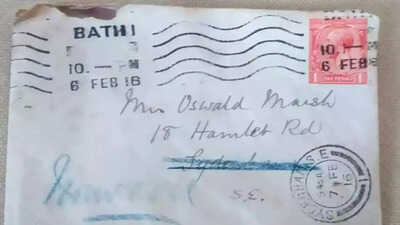 BATH
10.— PM
6 FEB 16
10.—PM
6 FEB 16
1 ONE PENNY 1
Mrs Oswald Marsh
18 Hamlet Rd
Sydenham
S.E.
SYDENHAM S.E
7 FE
16